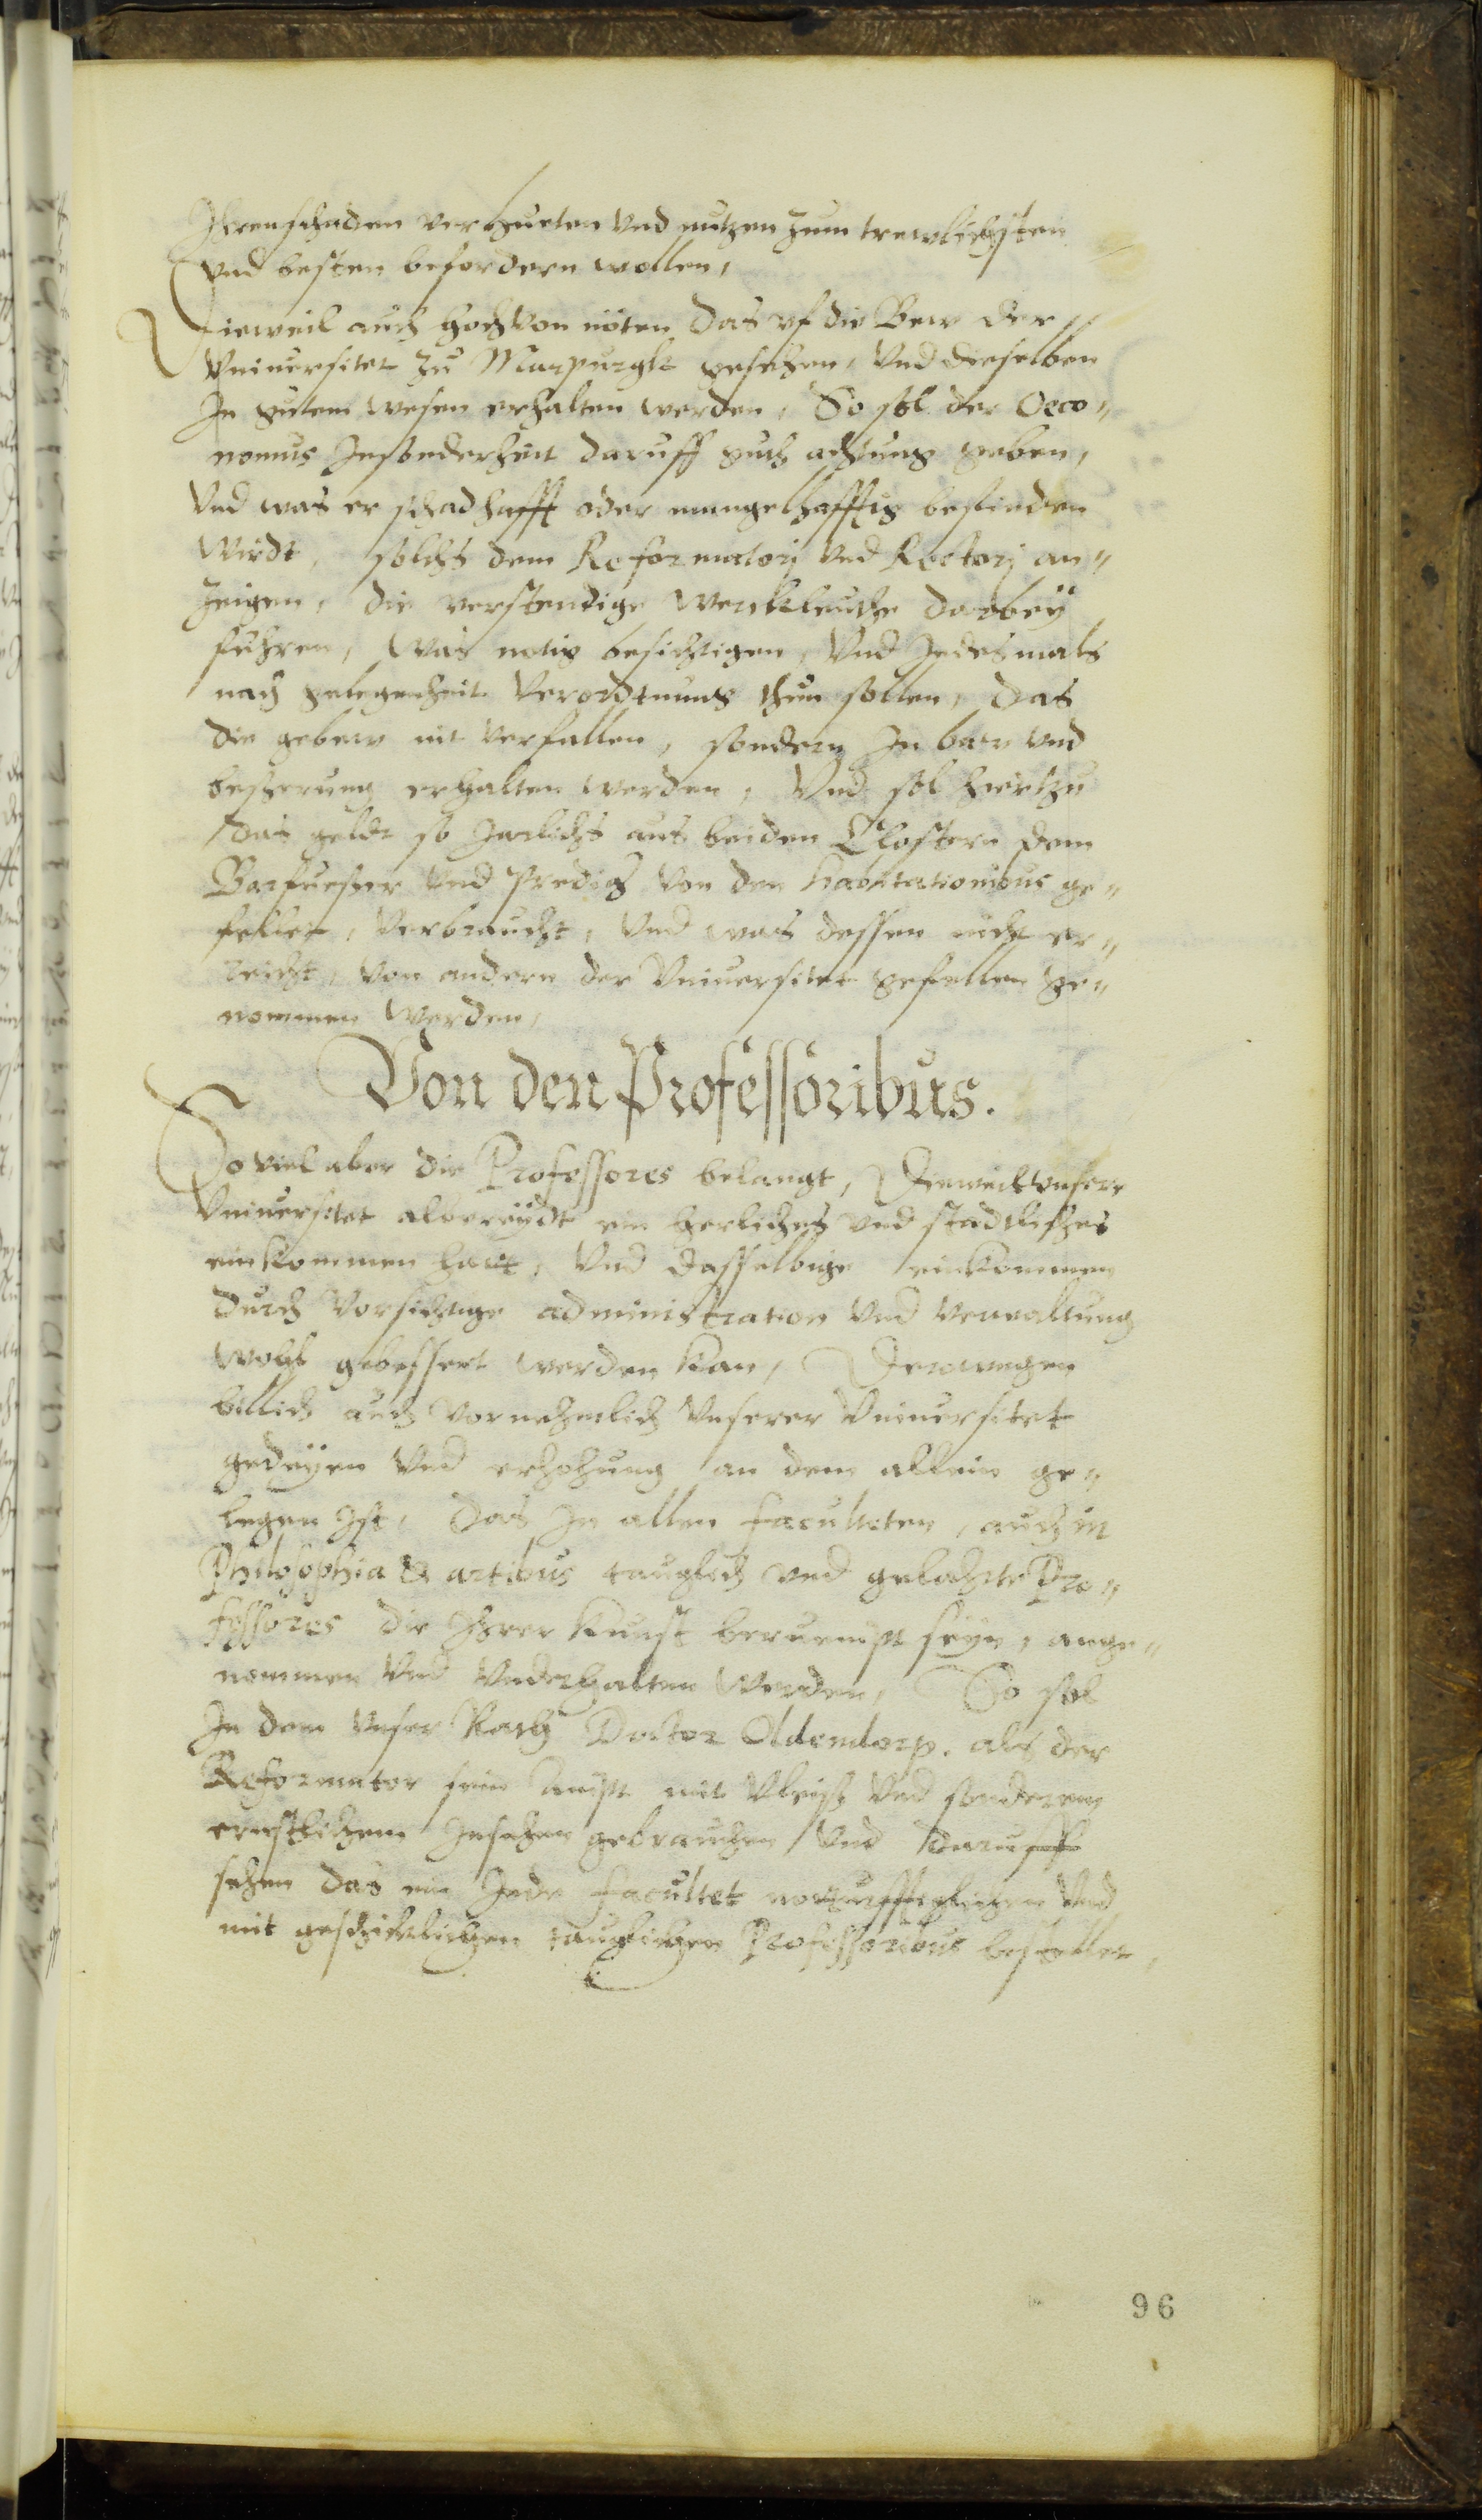 Ihren schaden verhueten vnd nutzen zum trewlichsten
vnd besten befordern wollen,
Dieweil auch hoch von nöten das vf die Bew der
Vniuersitet zu Marpurgk gesehen, vnd dieselben
In gutem wesen erhalten werden, So sol der Oeco„
nomus Insonderheit daruff guth achtung geben,
Vnd was er schadhafft oder mangelhafftig befinden
wirdt, solchs dem Reformatorj vnd Rectorj an„
zeigen, die verstendige werckleuthe darbeÿ
fuhren, was notig besichtigen, vnd Jedesmals
nach gelegenheit verordtnung thun sollen, das
die gebew nit verfallen, sondern In baw vnd
besserung erhalten werden, Vnd sol hiertzu
das geldt so Jarlichs aus beiden Clostern dem
Barfuesser vnd Prediger von den habitationibus ge„
fellet, verbraucht, vnd was dessen nicht er„
reicht, von andern der Vniuersitet gefellen ge„
nommen werden,
Von den Professoribus.
So viel aber die Professores belangt, Dieweil vnsere
Vniuersitet albereÿdt ein herliches vnd stadtliches
einkommen hatt, vnd dasselbige einkommen
durch vorsichtige administration vnd verwaltung
wohl gebessert werden kan, Derowegen
billich auch vornehmlich vnserer Vniuersitet
gedeÿen vnd erhohung an dem allein ge„
legen Ist, das In allen faculteten, auch in
Philosophia & artibus tauglich vnd gelahrte Pro„
fessores die Ihrer kunst beruempt seÿn, ange„
nommen vnd vnderhalten werden, So sol
In dem vnser Rath Doctor Oldendorp. als der
Reformator sein Ampt mit vleiss vnd sonderem
ernstlichem Insehen gebrauchen vnd daruff
sehen das ein Jede facultet notturfftiglichen vnd
mit geschicklichen tauglichen Professoribus bestellet,
96